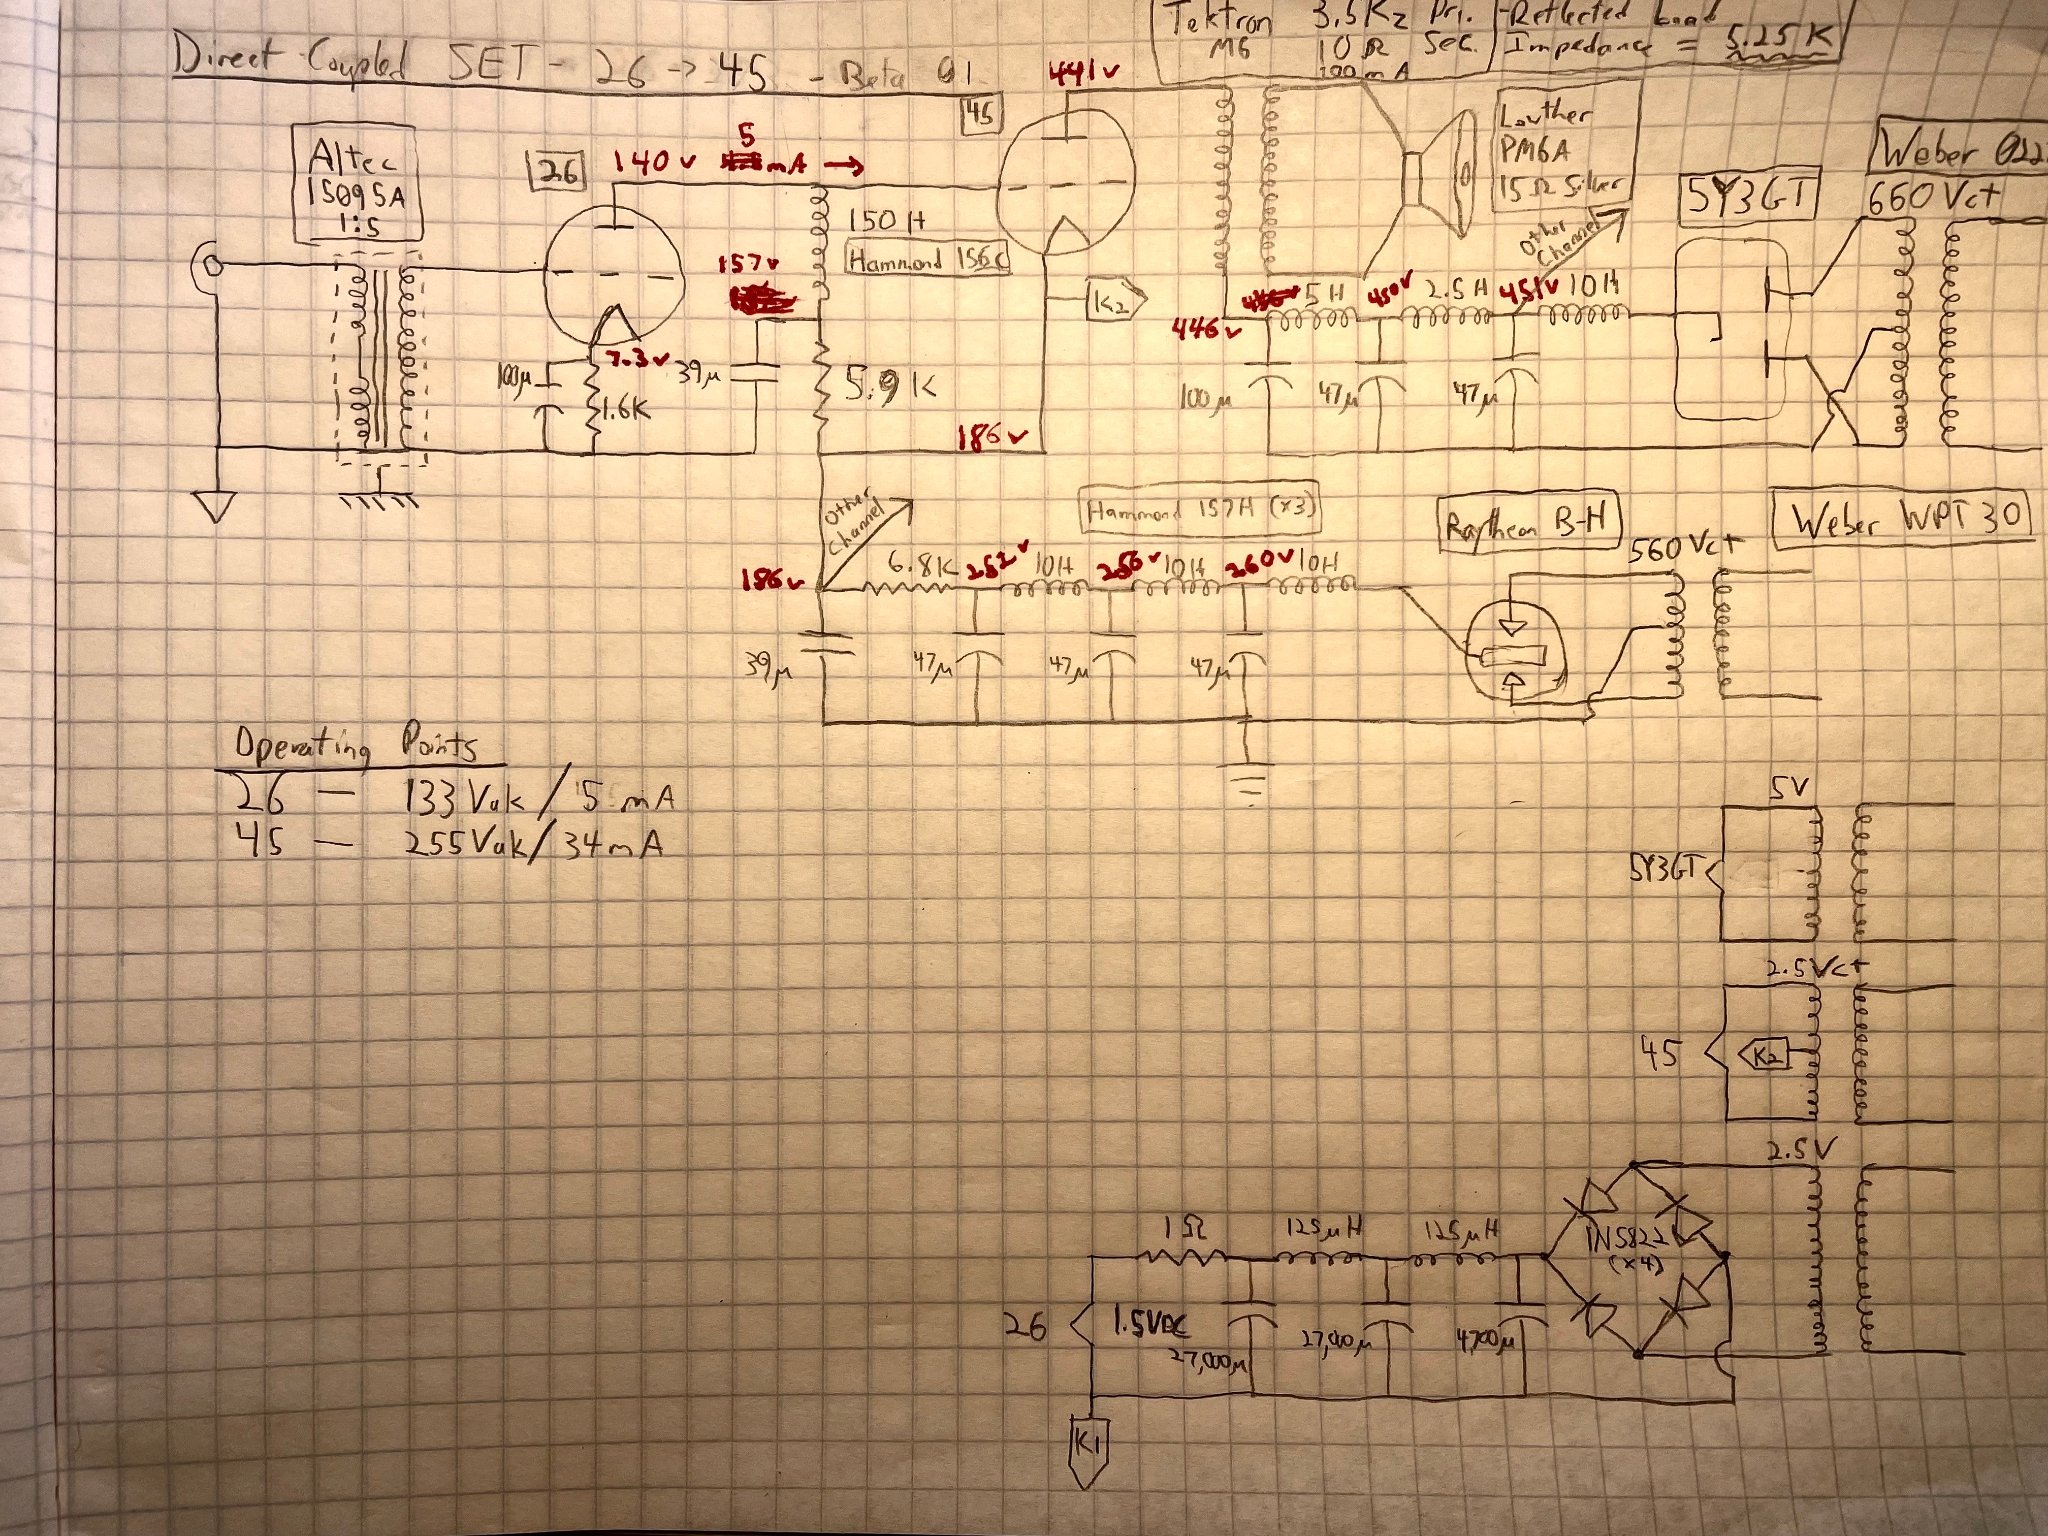 Direct Coupled SET - 26 → 45 - Beta 01
Tektron 3.5K Pri.
M6 10Ω Sec.
100mA
-Reflected Load
Impedance = 5.25K
Altec
15095A
1:5
26
140v 5 mA →
45
441v
150H
Hammond 156C
157v
7.3v
100µ
1.6K
39µ
5.9K
186v
K2
Lowther
PM6A
15Ω Silver
Other
Channel
446v 5H 450v 2.5H 451v 10H
100µ
47µ
47µ
5Y3GT
Weber 022
660Vct
Other
Channel
Hammond 157H (x3)
Raytheon B-H
560Vct
Weber WPT30
186v 6.8K 252v 10H 256v 10H 260v 10H
39µ
47µ
47µ
47µ
Operating Points
26 — 133Vak/5mA
45 — 255Vak/34mA
5V
5Y3GT
2.5Vct
45
K2
2.5V
1Ω
125µH
125µH
1N5822
(x4)
26
1.5VDC
27,000µ
27,000µ
4700µ
K1